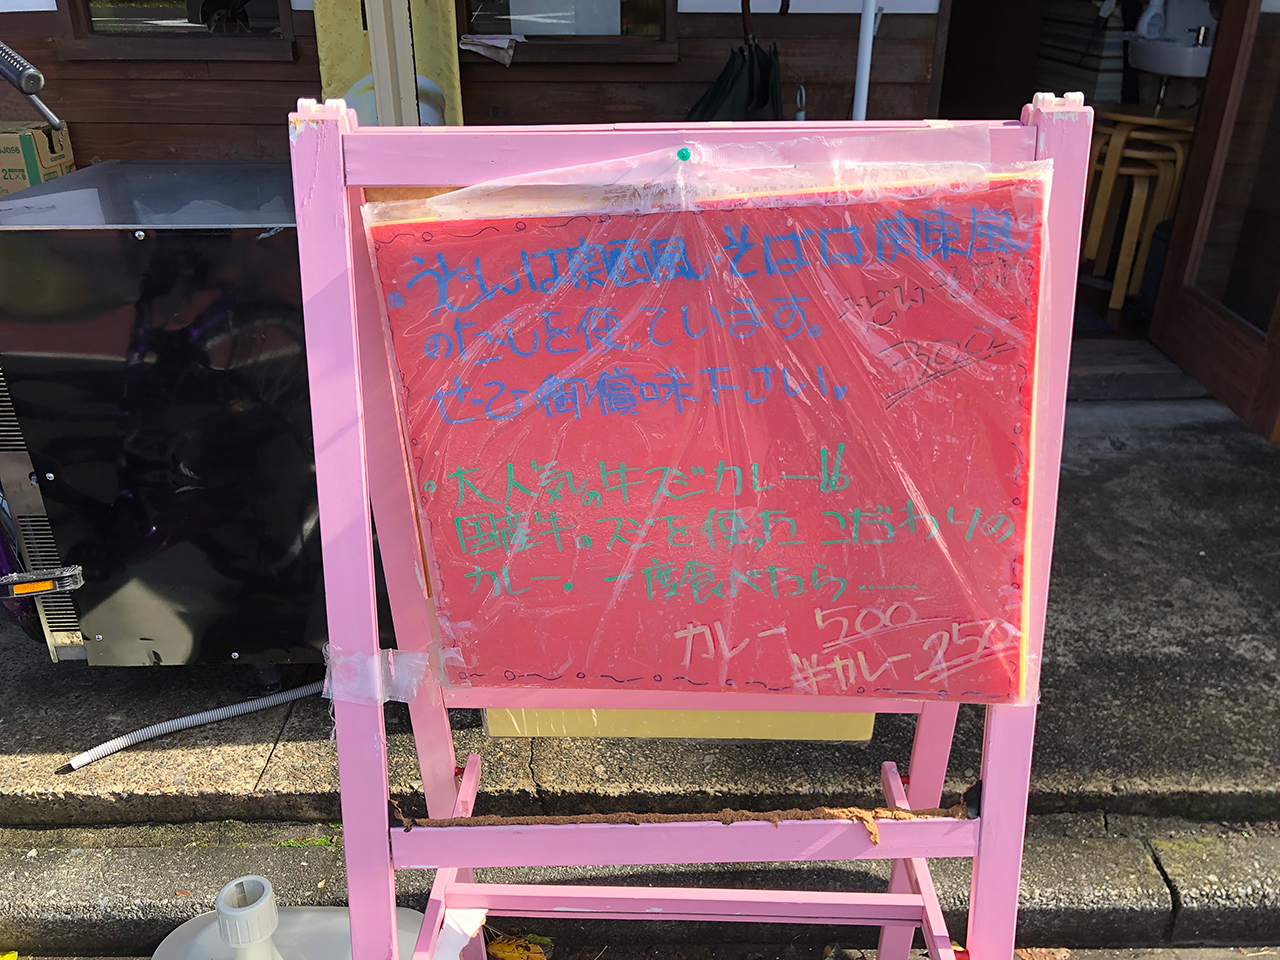 うどんは関西風、そばは関東風
のだしを使っています。
ぜひ御賞味下さい。
300
大人気の牛スジカレー!!
国産牛のスジを使ったこだわりの
カレー。一度食べたら……
カレー 500
半カレー 250
2L×6